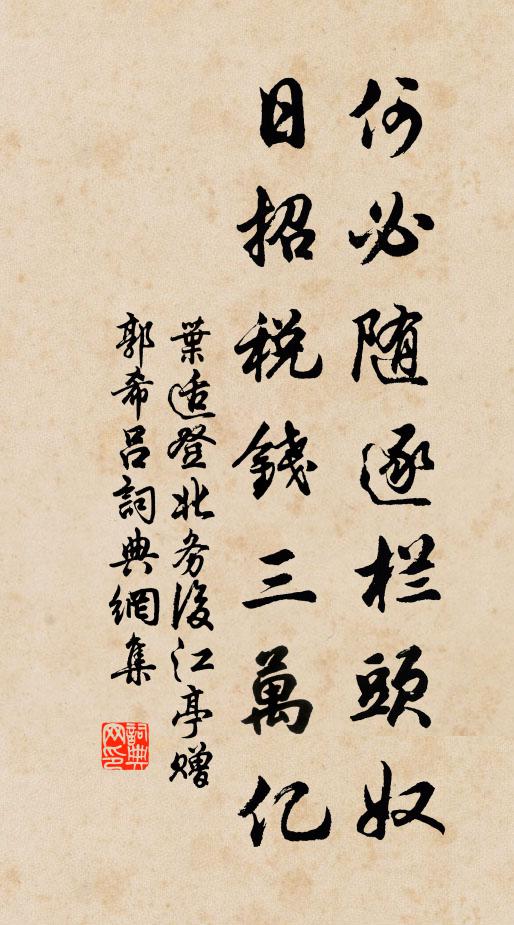 何必随逐栏頭奴
日招税錢三萬亿
葉适登北务後江亭赠
郭希吕詞典網集
詞典网印